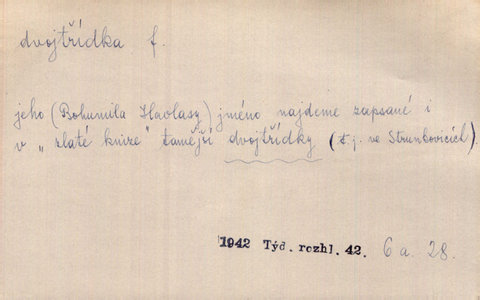 dvojtřídka f.
jeho (Bohumila Havlasy) jméno najdeme zapsané i
v „zlaté knize" tamější dvojtřídky (t.j. ve Strunkovicích).
1942 Týd. rozhl. 42. 6 a. 28.